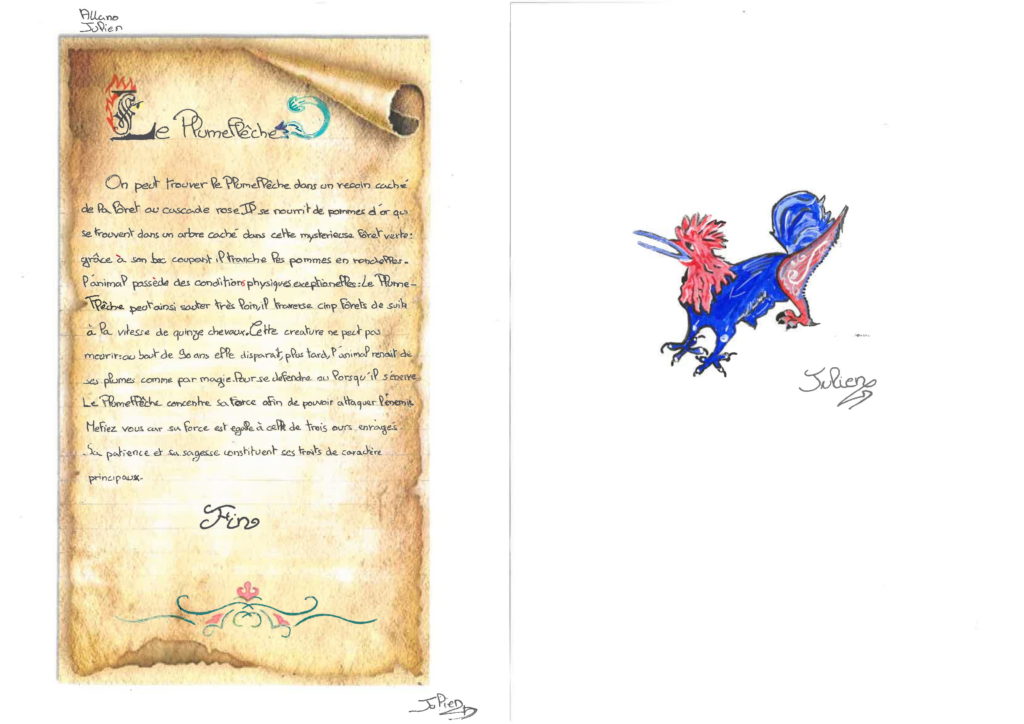 Allano
Julien
Le Plumeflèche
On peut trouver le Plumeflèche dans un recoin caché
de la foret au cascade rose. Il se nourrit de pommes d'or qui
se trouvent dans un arbre caché dans cette mysterieuse foret verte:
grâce à son bec coupant il tranche les pommes en rondelles.
l'animal possède des conditions physiques exeptionelles: Le Plume-
flèche peut ainsi sauter très loin, il traverse cinq forets de suite
à la vitesse de quinze chevaux. Cette creature ne peut pas
mourir: au bout de 90 ans elle disparait, plus tard, l'animal renait de
ses plumes comme par magie. Pour se défendre ou lorsqu'il s'énerve
Le Plumeflèche concentre sa force afin de pouvoir attaquer l'énemi.
Mefiez vous car sa force est egale à celle de trois ours enragés
Sa patience et sa sagesse constituent ses traits de caractère
principaux.
Fin
Julien
Julien